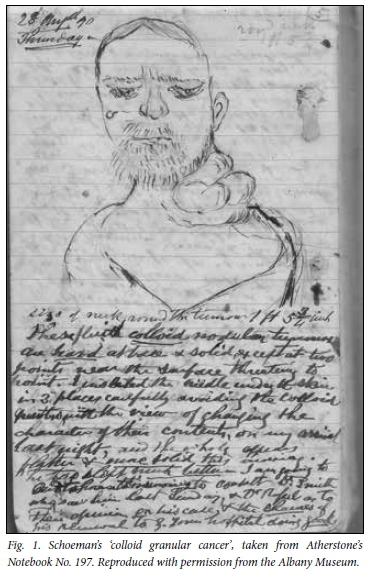 28 Augt 90
Thursday
size of neck round the tumour 1 ft 5 3/4 inch
These colloid nodular tumours
are hard at base & solid except at two
points near the surface threatening to
point. I the needle under the skin
in 3 places carefully avoiding the colloid
with the view of changing the
character of their contents, on my
last night, and
& more solid this
much better I am going to
to consult Dr Smith
who saw him last Sunday, & Dr as to
their opinion on his case & the chances of
his removal to G. Town hospital doing good
Fig. 1. Schoeman's 'colloid granular cancer', taken from Atherstone's
Notebook No. 197. Reproduced with permission from the Albany Museum.